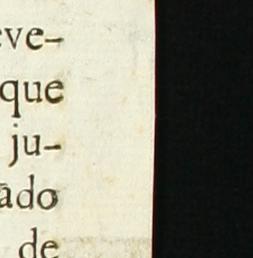 eve-
que
ju-
ado
de